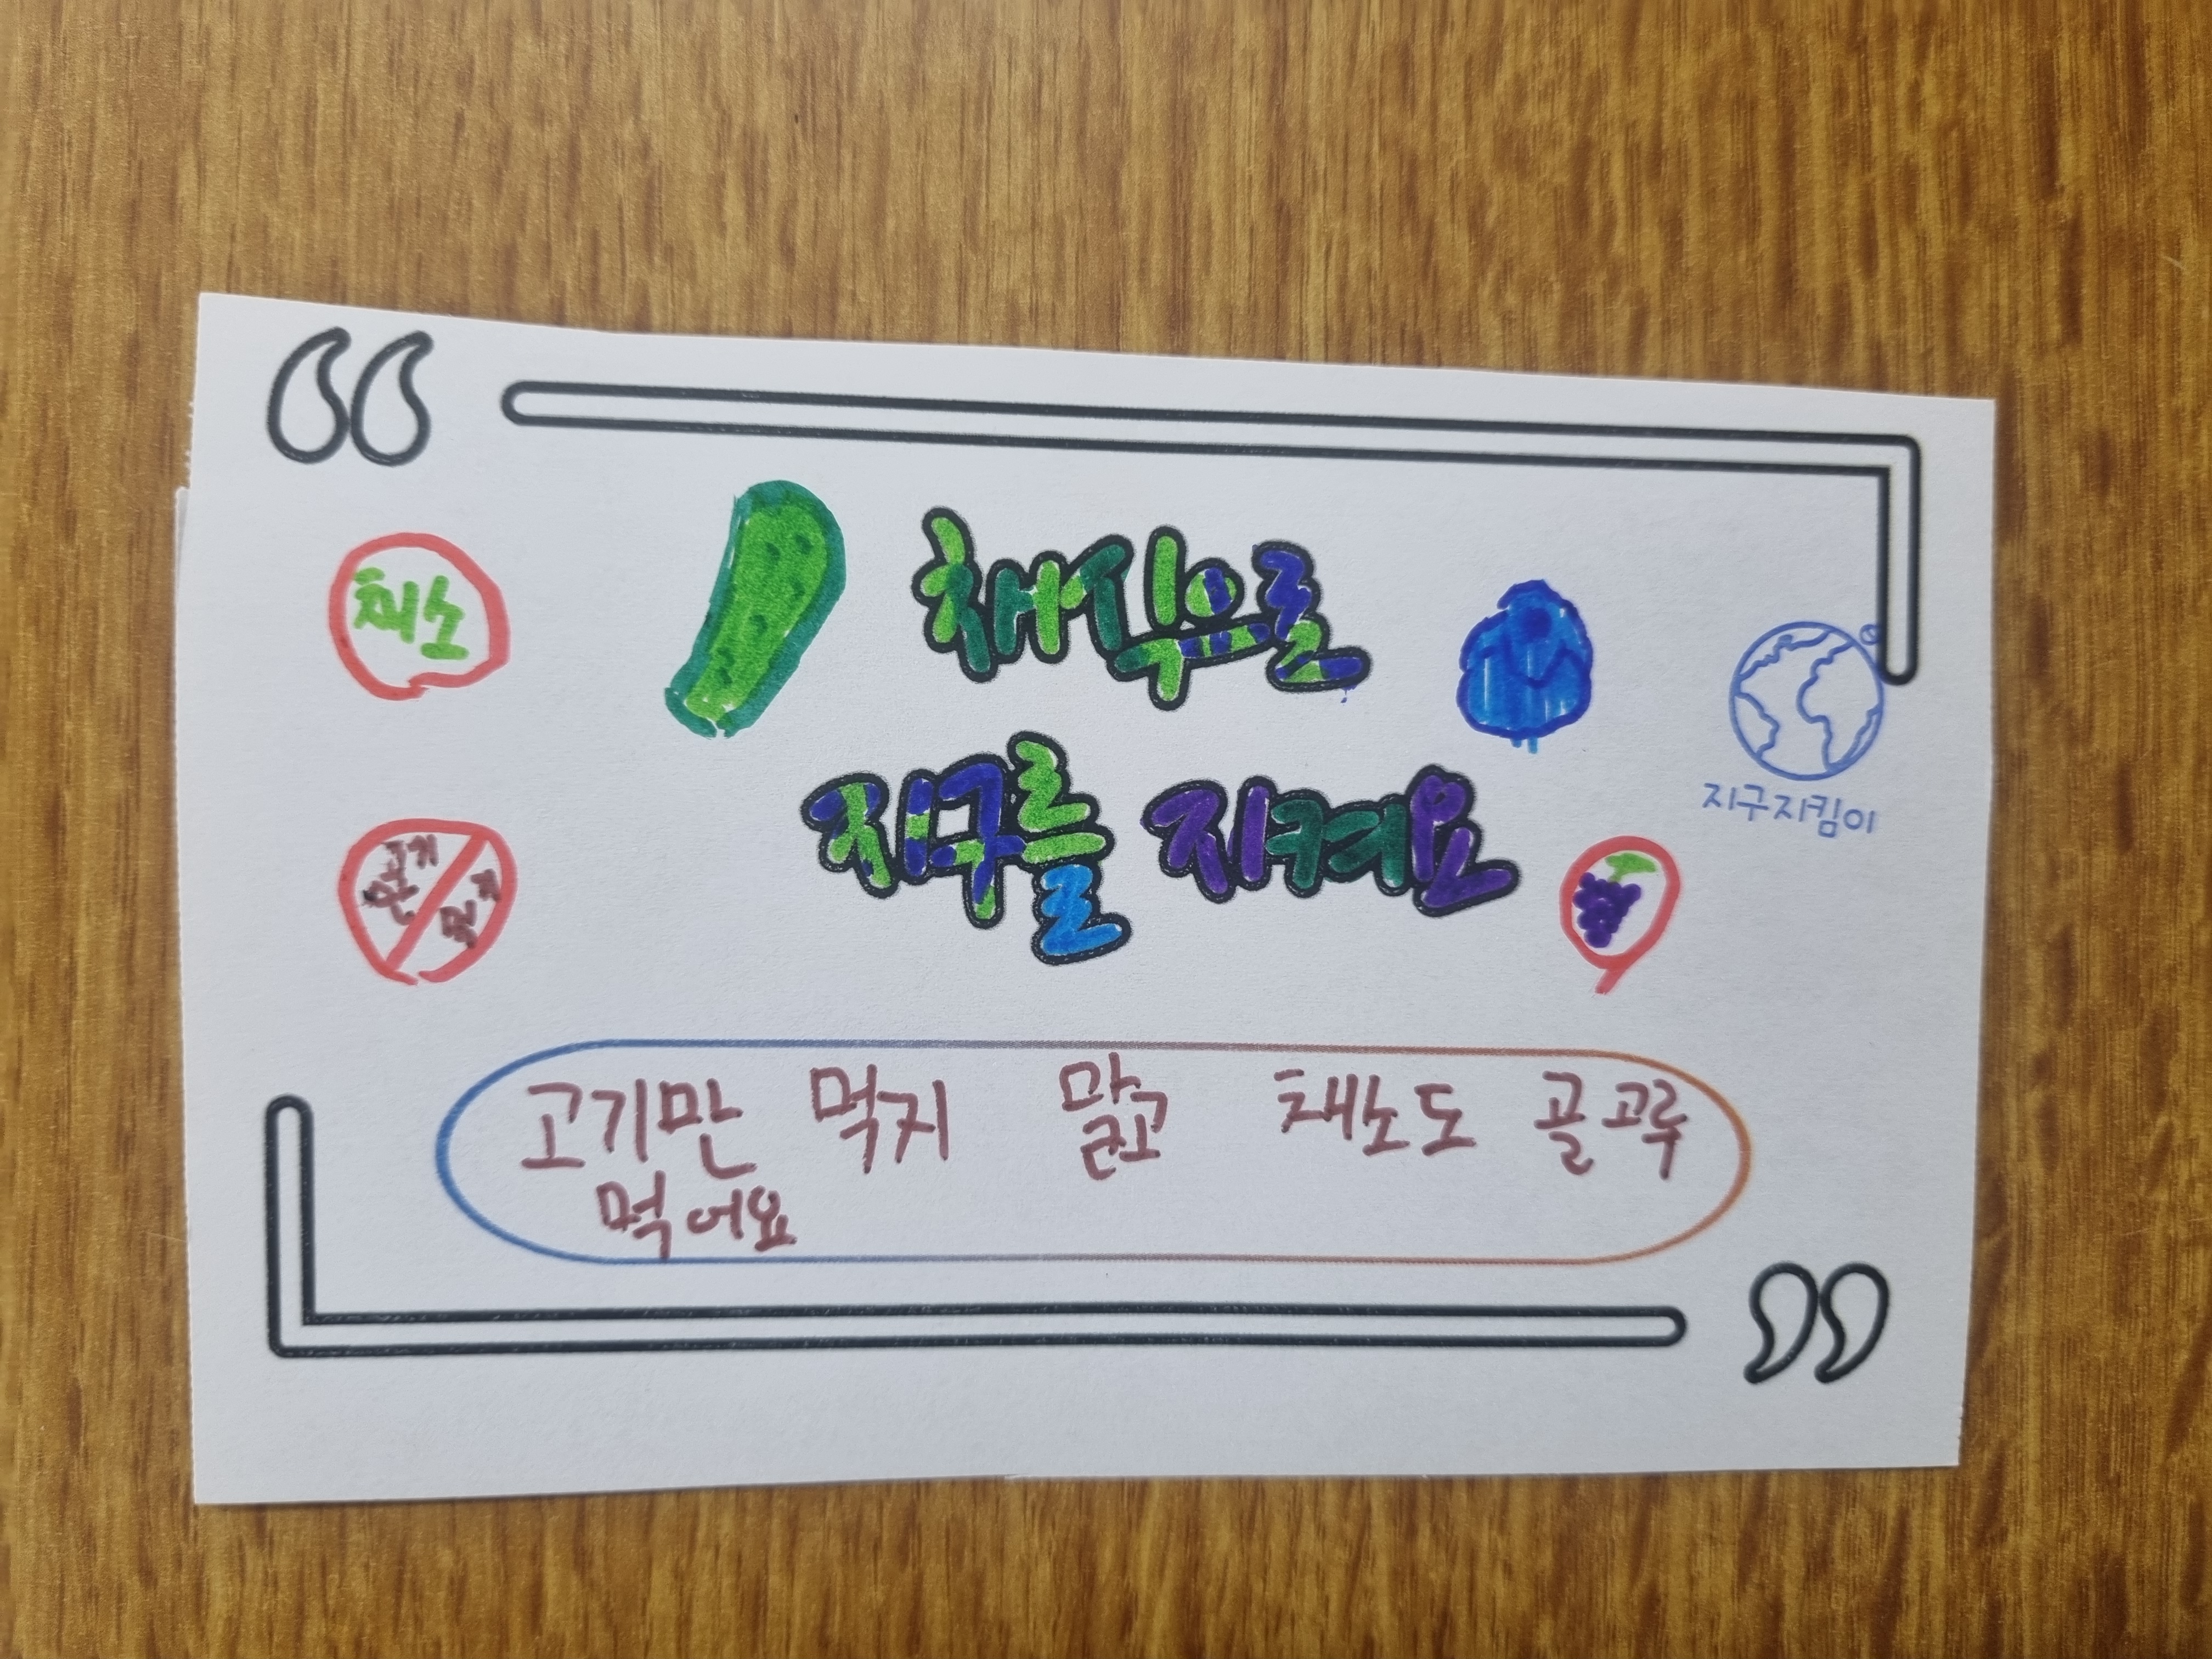 채소
채식으로
지구를 지켜요
지구지킴이
고기
만
먹기
고기만 먹지 말고 채소도 골고루
먹어요